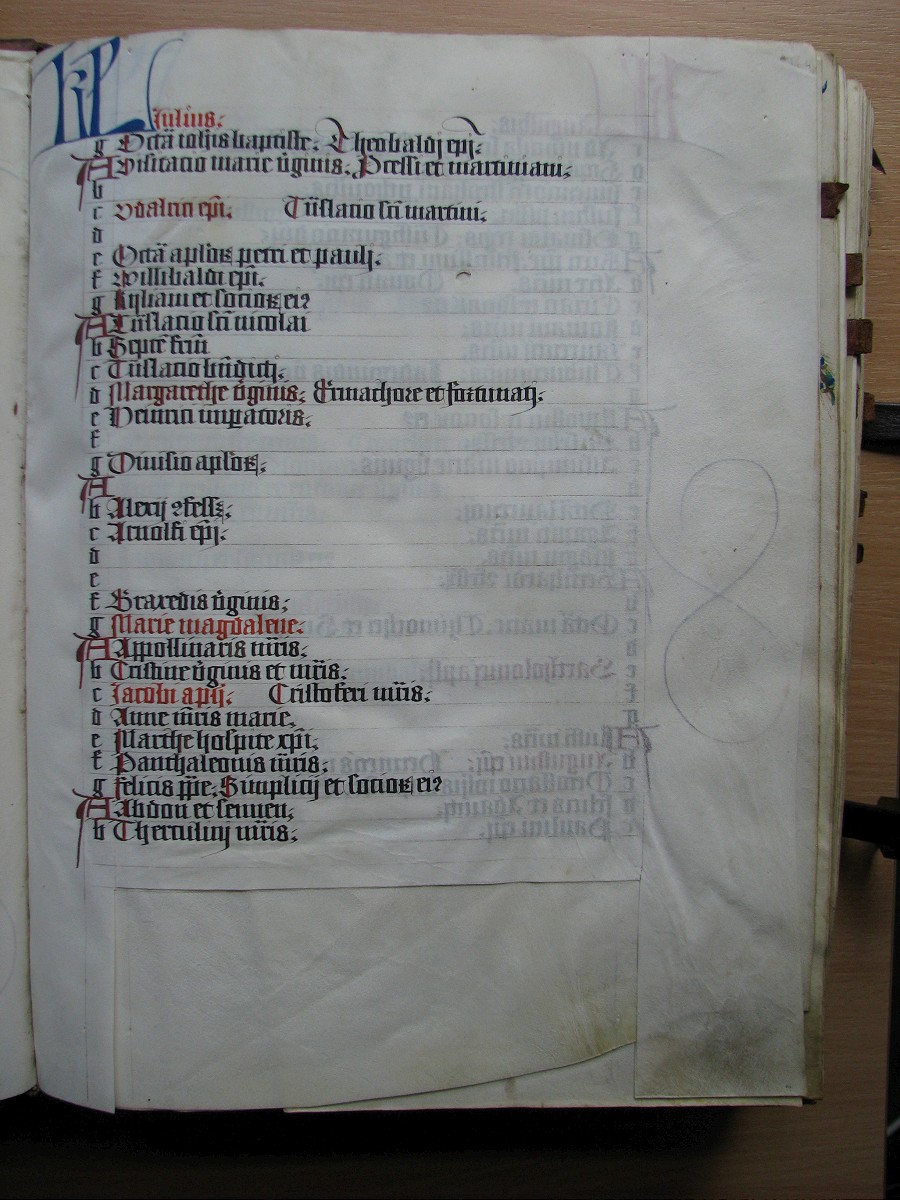 KL
Julius.
g Octā iohīs baptiste. Theobaldi ep̄i.
A Visitatio marie v̄ginis. Pcessi et martiniani.
b
c Vdalrici ep̄i. Trāslatio sc̄i martini.
d
e Octā aplōꝝ petri et pauli.
f Willibaldi ep̄i.
g Kyliani et socioꝝ eiꝰ
A Trāslatio sc̄i nicolai
b Septē fr̄m
c Trāslatio bn̄dicti.
d Margarethe v̄ginis. Ermachore et fortunati.
e Heinrici imꝑatoris.
f
g Diuisio aplōꝝ.
A
b Alexij ꝯfess.
c Arnolfi ep̄i.
d
e
f Braxedis v̄ginis.
g Marie magdalene.
A Appollinaris m̄ris.
b Cristine v̄ginis et m̄ris.
c Jacobi apli. Cristoferi m̄ris.
d Anne m̄ris marie.
e Marthe hospite xp̄i.
f Panthaleonis m̄ris.
g felicis ꝑpe. Simplicij et socioꝝ eiꝰ
A Abdon et sennen.
b Therculini m̄ris.